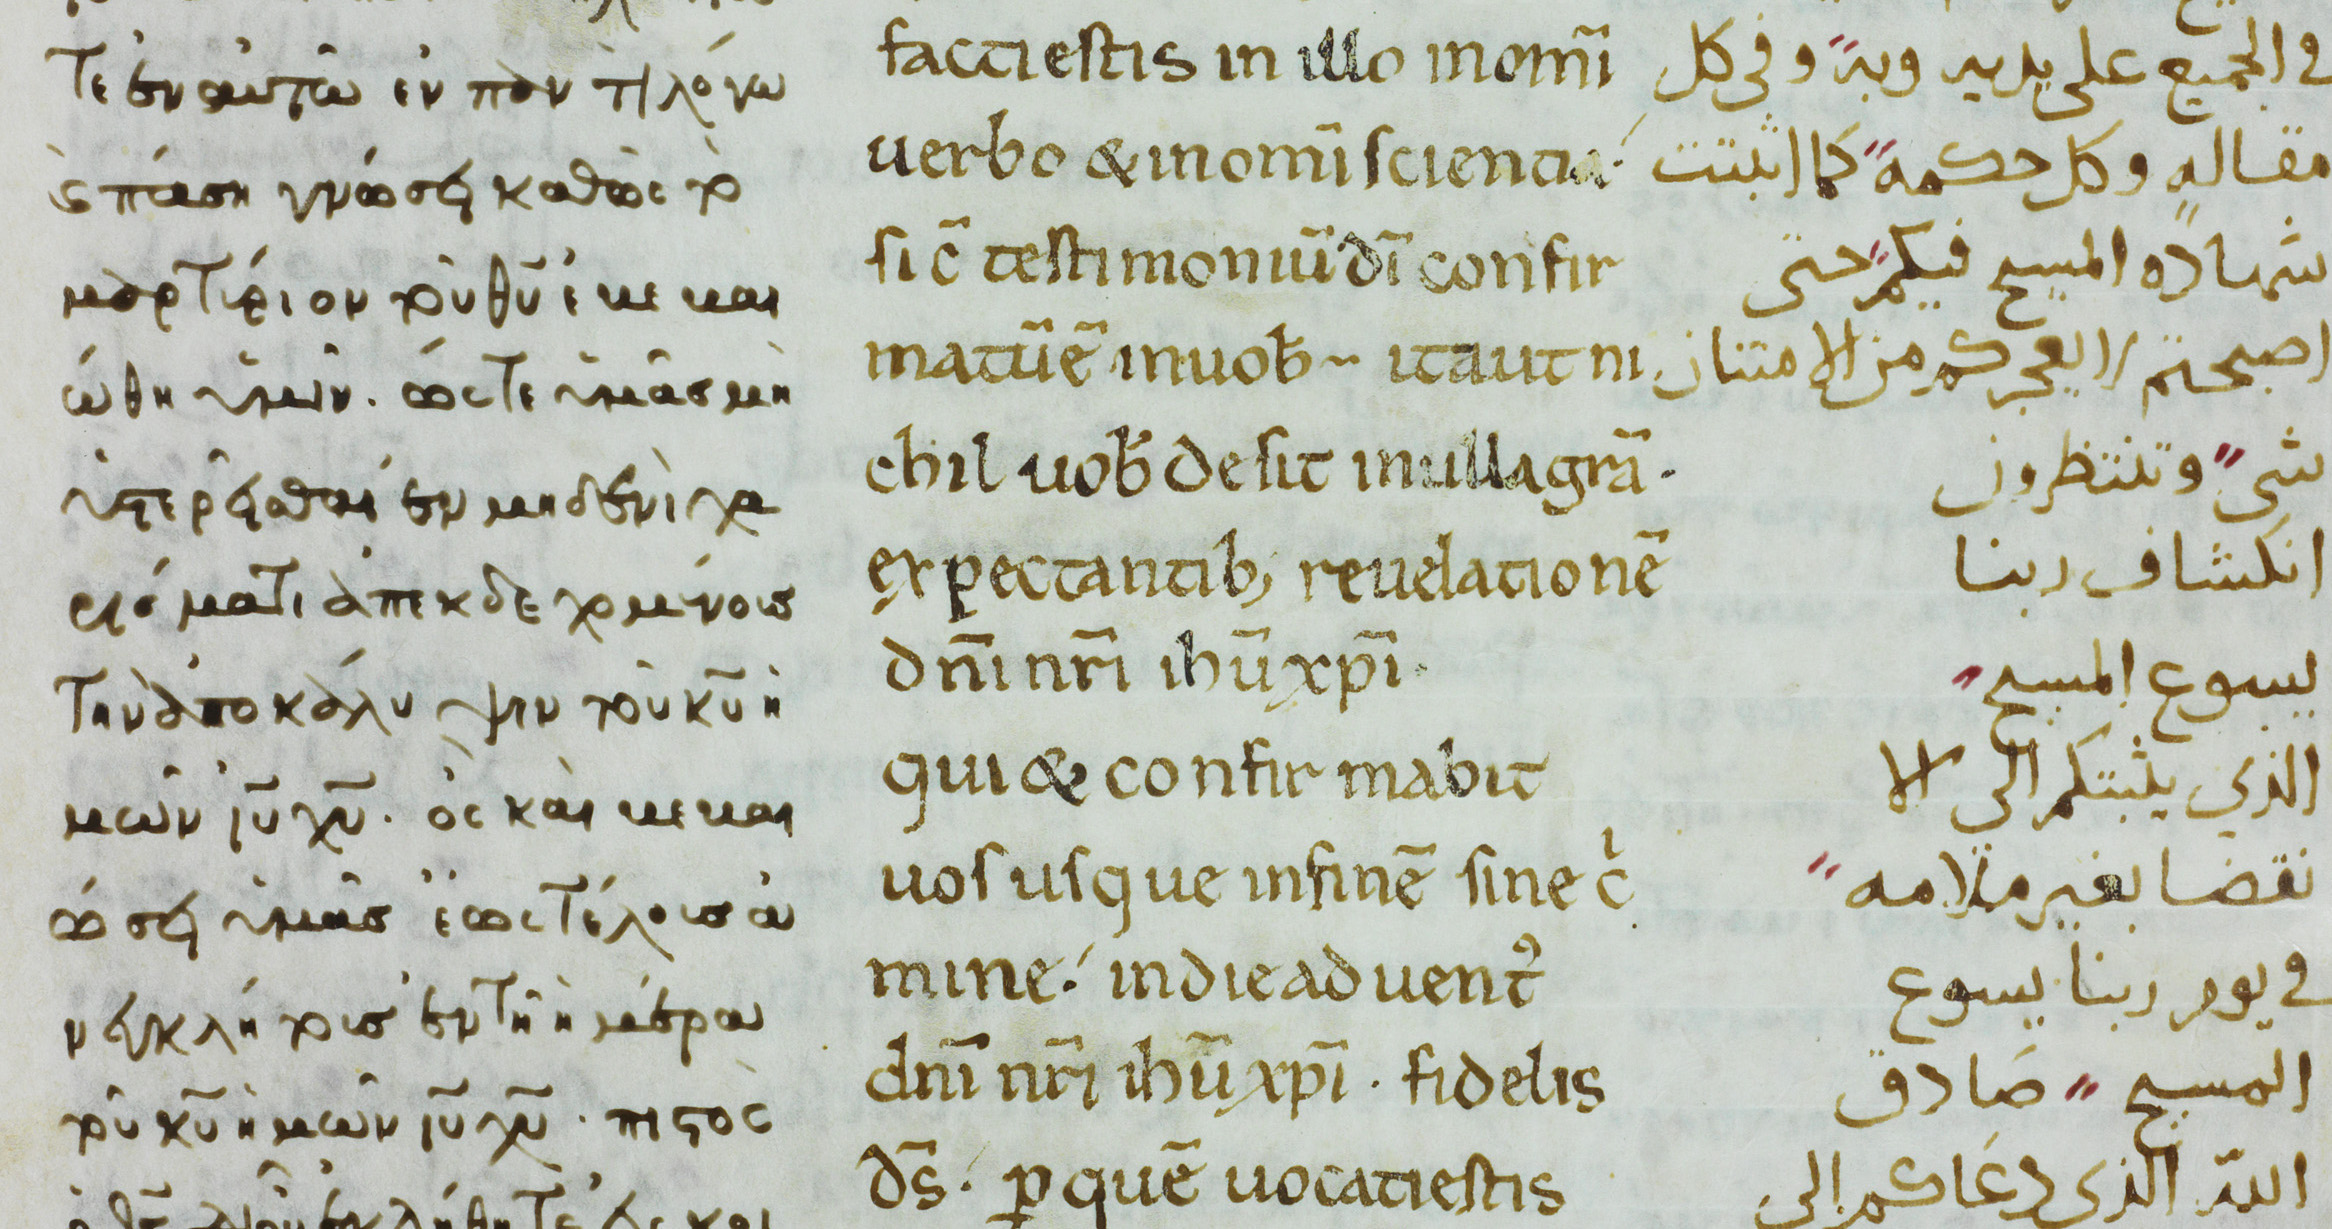 τε ἐν αὐτῶ ἐν παντὶ λόγω
ϗ πάση γνώσει καθὼς τὸ
μαρτύριον τοῦ θῦ ἐβεβαι
ώθη ὑμῖν. ὥστε ὑμᾶσ μὴ
ὑστερεῖσθαι ἐν μηδενὶ χα
ρίσματι ἀπεκδεχομένουσ
τὴν ἀποκάλυψιν τοῦ κῦ ἡ
μῶν ιῦ χῦ. ὃς καὶ βεβαι
ώσει ὑμᾶσ ἕως τέλουσ ἀ
νεγκλήτουσ ἐν τῆ ἡμέρα
τοῦ κῦ ἡμῶν ιῦ χῦ. πιστὸς
facti estis in illo in om̄i
uerbo & in om̄i scientia.
sic̄ testimoniū dī confir
matū ē in uob̄ itaut ni
chil uob̄ desit in ulla grā.
expectantib; reuelationē
dn̄i nr̄i ih̄u xp̄i.
qui & confirmabit
uos usque in finē sine c̍
mine. in die aduent᷒
dn̄i nr̄i ih̄u xp̄i. fidelis
ds̄. ꝑ quē uocati estis
في الجميع على يديه وبه وفي كل
مقاله وكل حكمه كما اثبتت
شهاده المسيح فيكم حتى
اصبحتم لا يعجزكم من الامتنان
شى وتنتظرون
انكشاف ربنا
يسوع المسيح
الذي يثبتكم الى الا
نقضا بغير ملامه
في يوم ربنا يسوع
المسيح صادق
الله الذى دعاكم الى